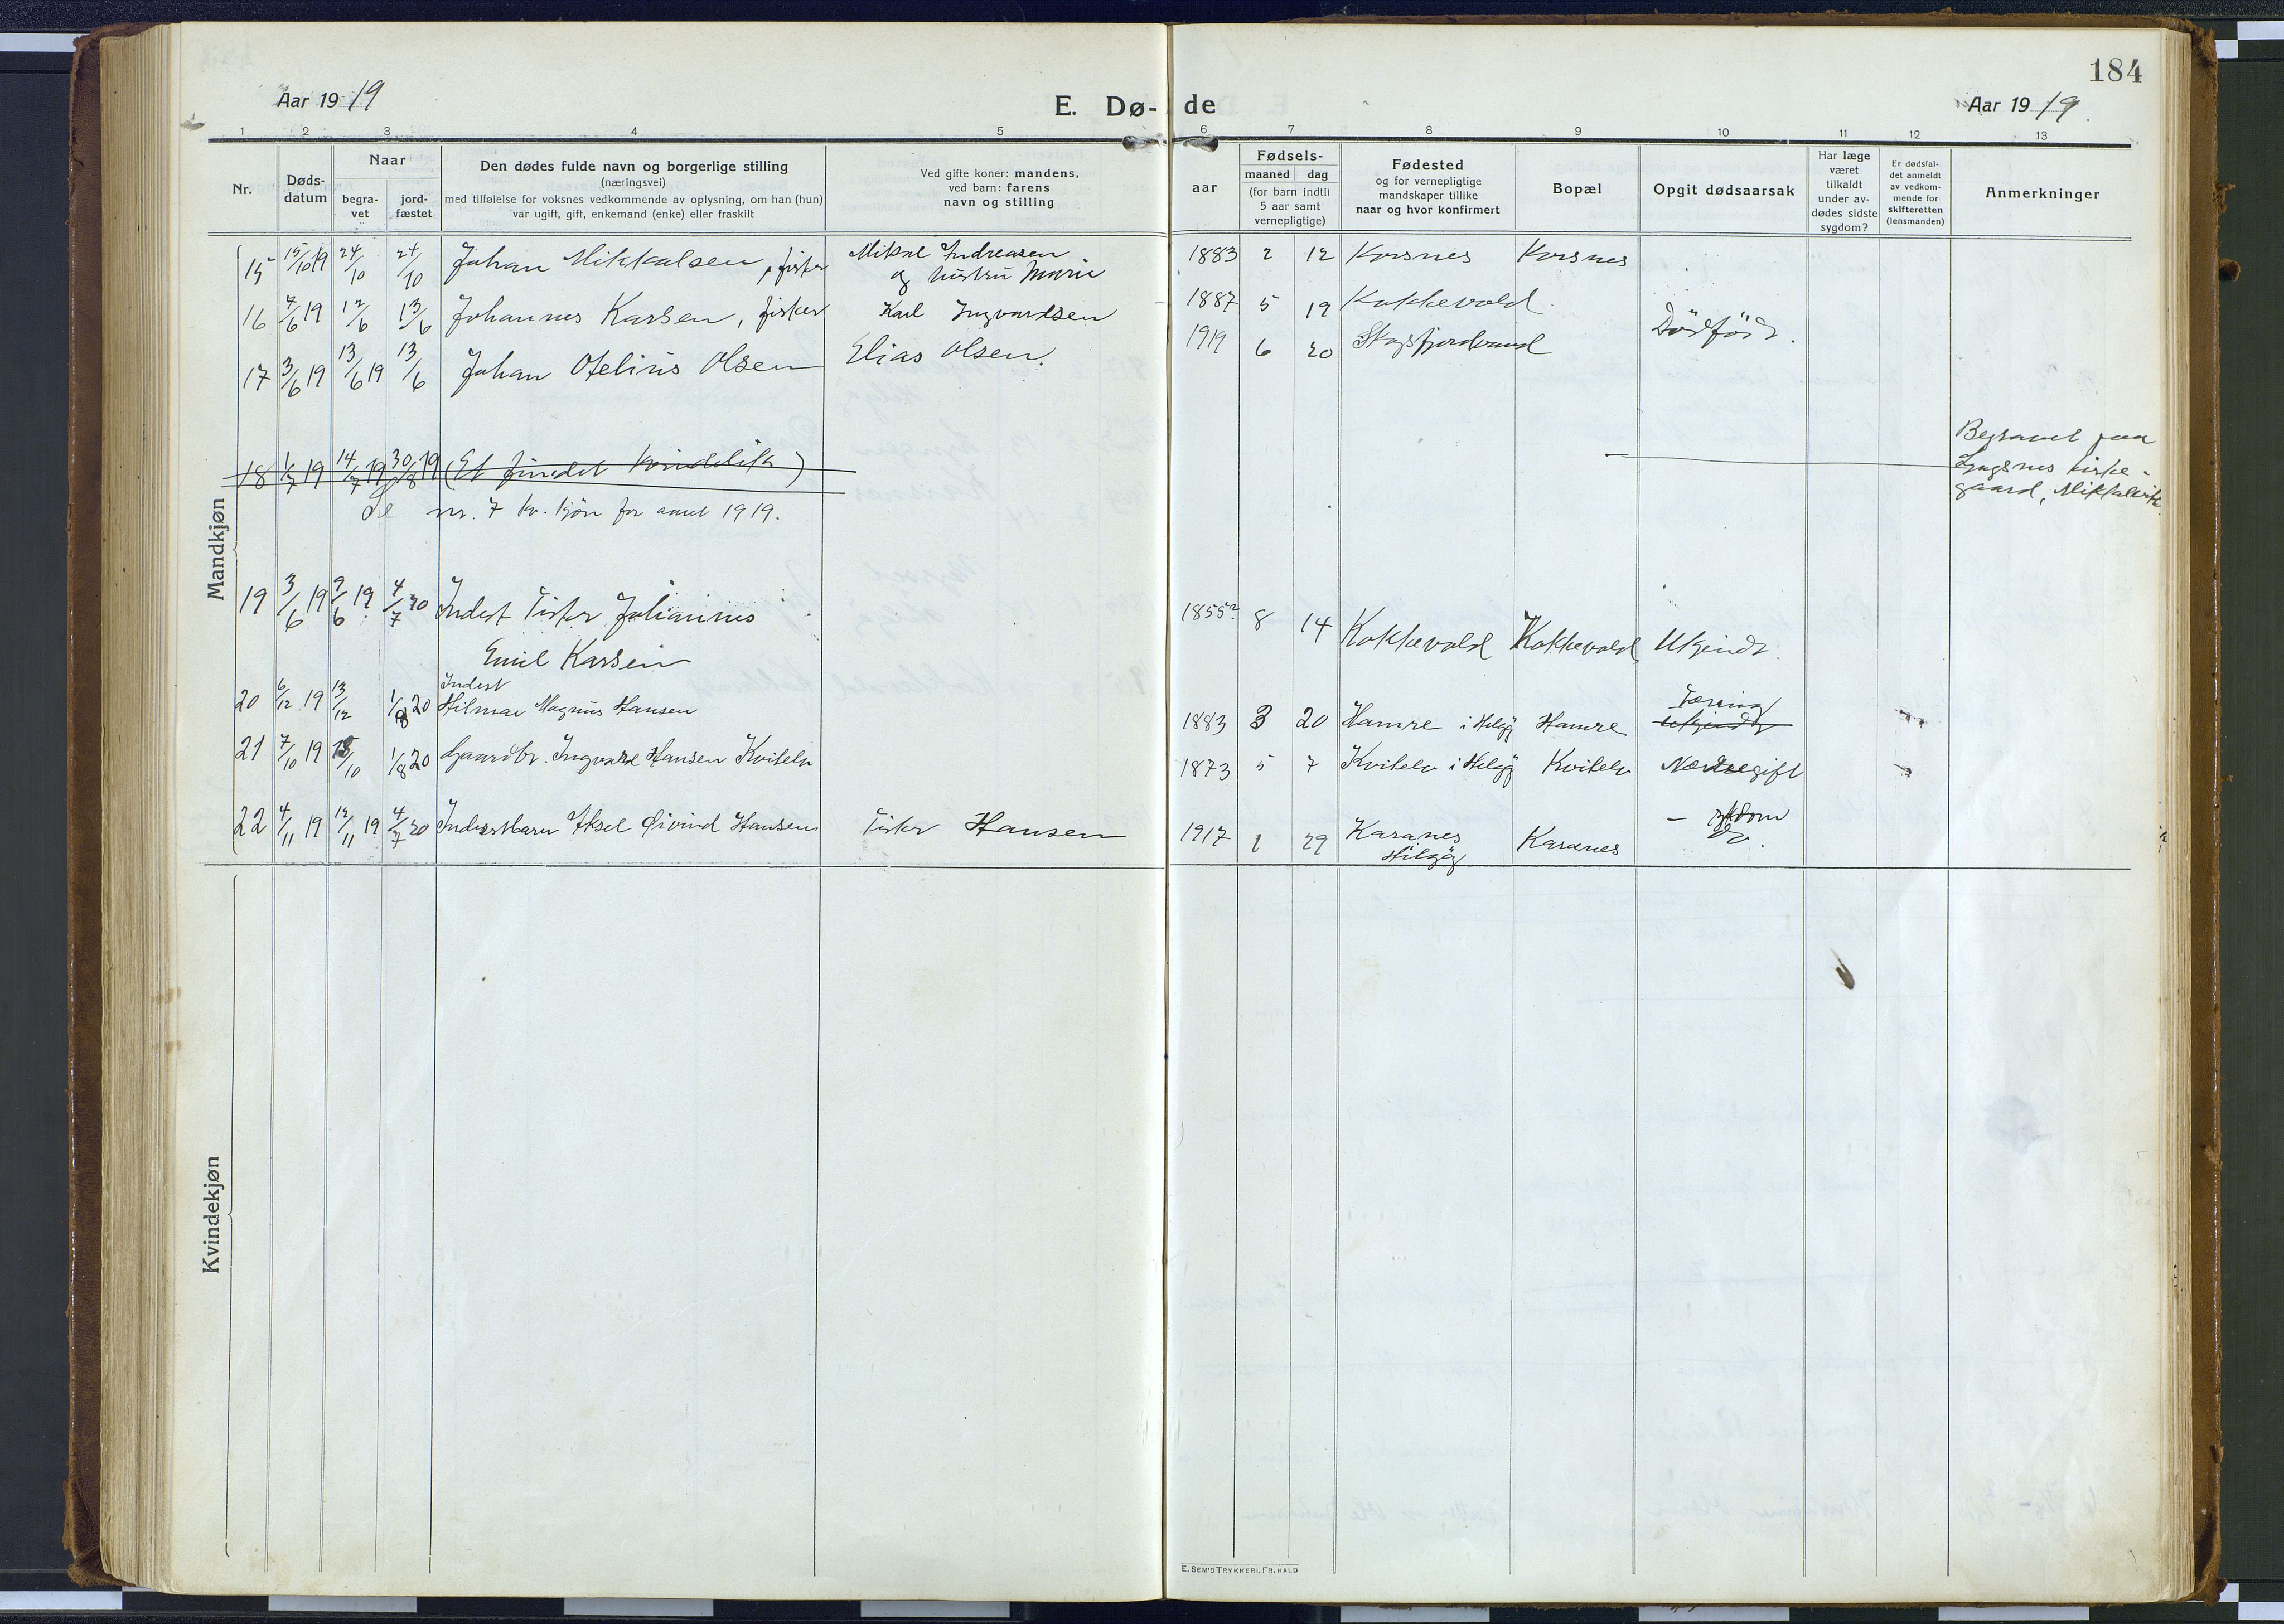 184
Aar 1919
E. Dø- de
Aar 1919.
1 2 3 4 5 6 7 8 9 10 11 12 13
Nr.
Døds-
datum
Naar
begra-
vet
jord-
fæstet
Den dødes fulde navn og borgerlige stilling
(næringsvei)
med tilføielse for voksnes vedkommende av oplysning, om han (hun)
var ugift, gift, enkemand (enke) eller fraskilt
Ved gifte koner: mandens,
ved barn: farens
navn og stilling
aar
Fødsels-
maaned dag
(for barn indtil
5 aar samt
vernepligtige)
Fødested
og for vernepligtige
mandskaper tillike
naar og hvor konfirmert
Bopæl
Opgit dødsaarsak
Har læge
været
tilkaldt
under av-
dødes sidste
sygdom?
Er dødsfal-
det anmeldt
av vedkom-
mende for
skifteretten
(lensmanden)
Anmerkninger
Mandkjøn
15 15/10 19 24/10 24/10 Johan Mikkalsen, fisker Mikal Andreasen
og hustru Marie 1883 2 12 Korsnes Korsnes
16 7/6 19 12/6 13/6 Johannes Karlsen, fisker Karl Ingvardsen 1887 5 19 Kokkevold
17 3/6 19 13/6 19 13/6 Johan Otelius Olsen Elias Olsen. 1919 6 20 Skogsfjordvand Dödfödt.
18 1/7 19 14/7 19 30/8 19 (Et fundet kvindelik)
Begravet paa
kirke-
gaard, Mikkelvik
Se nr. 7 kv. kjön for aaret 1919.
19 3/6 19 9/6 19 4/7 20 Indst Fisker Julianius
Emil Karlsen 1855? 8 14 Kokkevold Kokkevold Ukjendt.
20 6/12 19 13/12 1/8 20 Indst
Hilmar Magnus Hansen 1883 3 20 Hamre i Helgøy Hamre Tæring
Ukjendt
21 7/10 19 15/10 1/8 20 Gaardbr. Ingvald Hansen Kvitelv 1873 5 7 Kvitelv i Helgøy Kvitelv
22 4/11 19 12/11 19 4/7 20 Aksel Øivind Hansen Fisker Hansen 1917 1 29 Karanes
Helgøy Karanes
Kvindekjøn
E. SEM'S TRYKKERI, FR. HALD